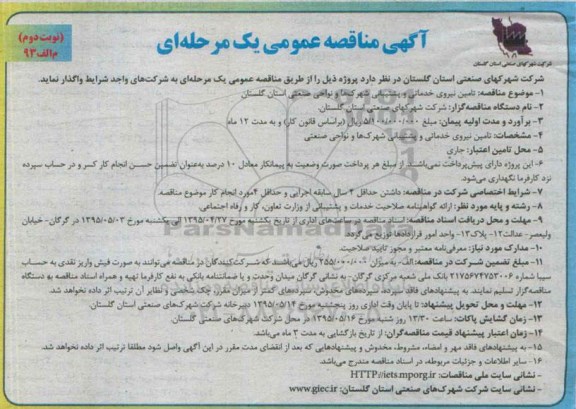 (نوبت دوم)
م الف ۹۳
آگهی مناقصه عمومی یک مرحله‌ای
شرکت شهرکهای صنعتی استان گلستان
شرکت شهرکهای صنعتی استان گلستان در نظر دارد پروژه ذیل را از طریق مناقصه عمومی یک مرحله‌ای به شرکت‌های واجد شرایط واگذار نماید.
۱- موضوع مناقصه: تامین نیروی خدماتی و پشتیبانی شهرک‌ها و نواحی صنعتی استان گلستان
۲- نام دستگاه مناقصه‌گزار: شرکت شهرکهای صنعتی استان گلستان
۳- برآورد و مدت اولیه پیمان: مبلغ ۵/۱۰۰/۰۰۰/۰۰۰ ریال (براساس قانون کار) و به مدت ۱۲ ماه
۴- مشخصات: تامین نیروی خدماتی و پشتیبانی شهرک‌ها و نواحی صنعتی
۵- محل تامین اعتبار: جاری
۶- این پروژه دارای پیش‌پرداخت نمی‌باشد. از مبلغ هر پرداخت صورت وضعیت به پیمانکار معادل ۱۰ درصد به‌عنوان تضمین حسن انجام کار کسر و در حساب سپرده
نزد کارفرما نگهداری می‌شود.
۷- شرایط اختصاصی شرکت در مناقصه: داشتن حداقل ۴ سال سابقه اجرایی و حداقل ۴ مورد انجام کار موضوع مناقصه
۸- رشته و پایه مورد نظر: ارائه گواهینامه صلاحیت خدمات و پشتیبانی از وزارت تعاون، کار و رفاه اجتماعی
۹- مهلت و محل دریافت اسناد مناقصه: اسناد مناقصه در ساعت‌های اداری از تاریخ یکشنبه مورخ ۱۳۹۵/۰۴/۲۷ الی یکشنبه مورخ ۱۳۹۵/۰۵/۰۳ در گرگان- خیابان
ولیعصر- عدالت ۱۲- پلاک ۱۳- واحد امور قراردادها توزیع می‌گردد.
۱۰- مدارک مورد نیاز: معرفی‌نامه معتبر و مجوز تایید صلاحیت.
۱۱- مبلغ تضمین شرکت در مناقصه: الف- به میزان ۲۵۵/۰۰۰/۰۰۰ ریال می‌باشد که شرکت‌کنندگان در مناقصه می‌توانند به صورت فیش واریز نقدی به حساب
سیبا شماره ۲۱۷۵۶۷۴۷۵۳۰۰۶ بانک ملی شعبه مرکزی گرگان- به نشانی گرگان میدان وحدت و یا ضمانتنامه بانکی به نفع کارفرما تهیه و همراه اسناد مناقصه به دستگاه
مناقصه‌گزار تسلیم نمایند. به پیشنهادهای فاقد سپرده، سپرده‌های مخدوش، سپرده‌های کمتر از میزان مقرر، چک شخصی و نظایر آن ترتیب اثر داده نخواهد شد.
۱۲- مهلت و محل تحویل پیشنهاد: تا پایان وقت اداری روز پنجشنبه مورخ ۱۳۹۵/۰۵/۱۴ دبیرخانه شرکت شهرک‌های صنعتی استان گلستان.
۱۳- زمان گشایش پاکات: ساعت ۱۳/۳۰ روز شنبه مورخ ۱۳۹۵/۰۵/۱۶ در محل شرکت شهرک‌های صنعتی استان گلستان.
۱۴- زمان اعتبار پیشنهاد قیمت مناقصه‌گران: از تاریخ بازگشایی به مدت ۳ ماه می‌باشد.
۱۵- به پیشنهادهای فاقد مهر و امضاء، مشروط، مخدوش و پیشنهادهایی که بعد از انقضای مدت مقرر در این آگهی واصل شود مطلقا ترتیب اثر داده نخواهد شد.
۱۶- سایر اطلاعات و جزئیات مربوطه، در اسناد مناقصه مندرج می‌باشد.
- نشانی سایت ملی مناقصات: HTTP://iets.mporg.ir
- نشانی سایت شرکت شهرک‌های صنعتی استان گلستان: www.giec.ir
ParsNamadData